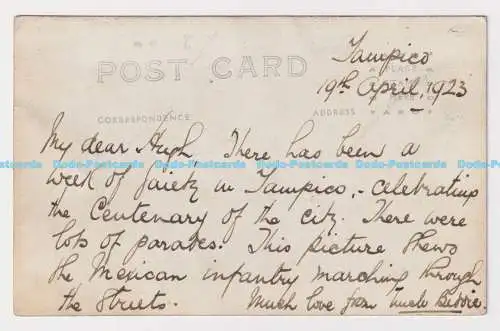 Tampico
19th April, 1923
POST CARD
PLACE
STAMP
HERE
CORRESPONDENCE
ADDRESS
My dear Hugh, There has been a
Dodo-Postcards Dodo-Postcards Dodo-Postcards Dodo-Postcards Dodo-Postcards
week of gaiety in Tampico, - celebrating
the Centenary of the city. There were
lots of parades. This picture shews
Dodo-Postcards Dodo-Postcards Dodo-Postcards Dodo-Postcards Dodo-Postcards
the Mexican infantry marching through
the streets. Much love from Uncle